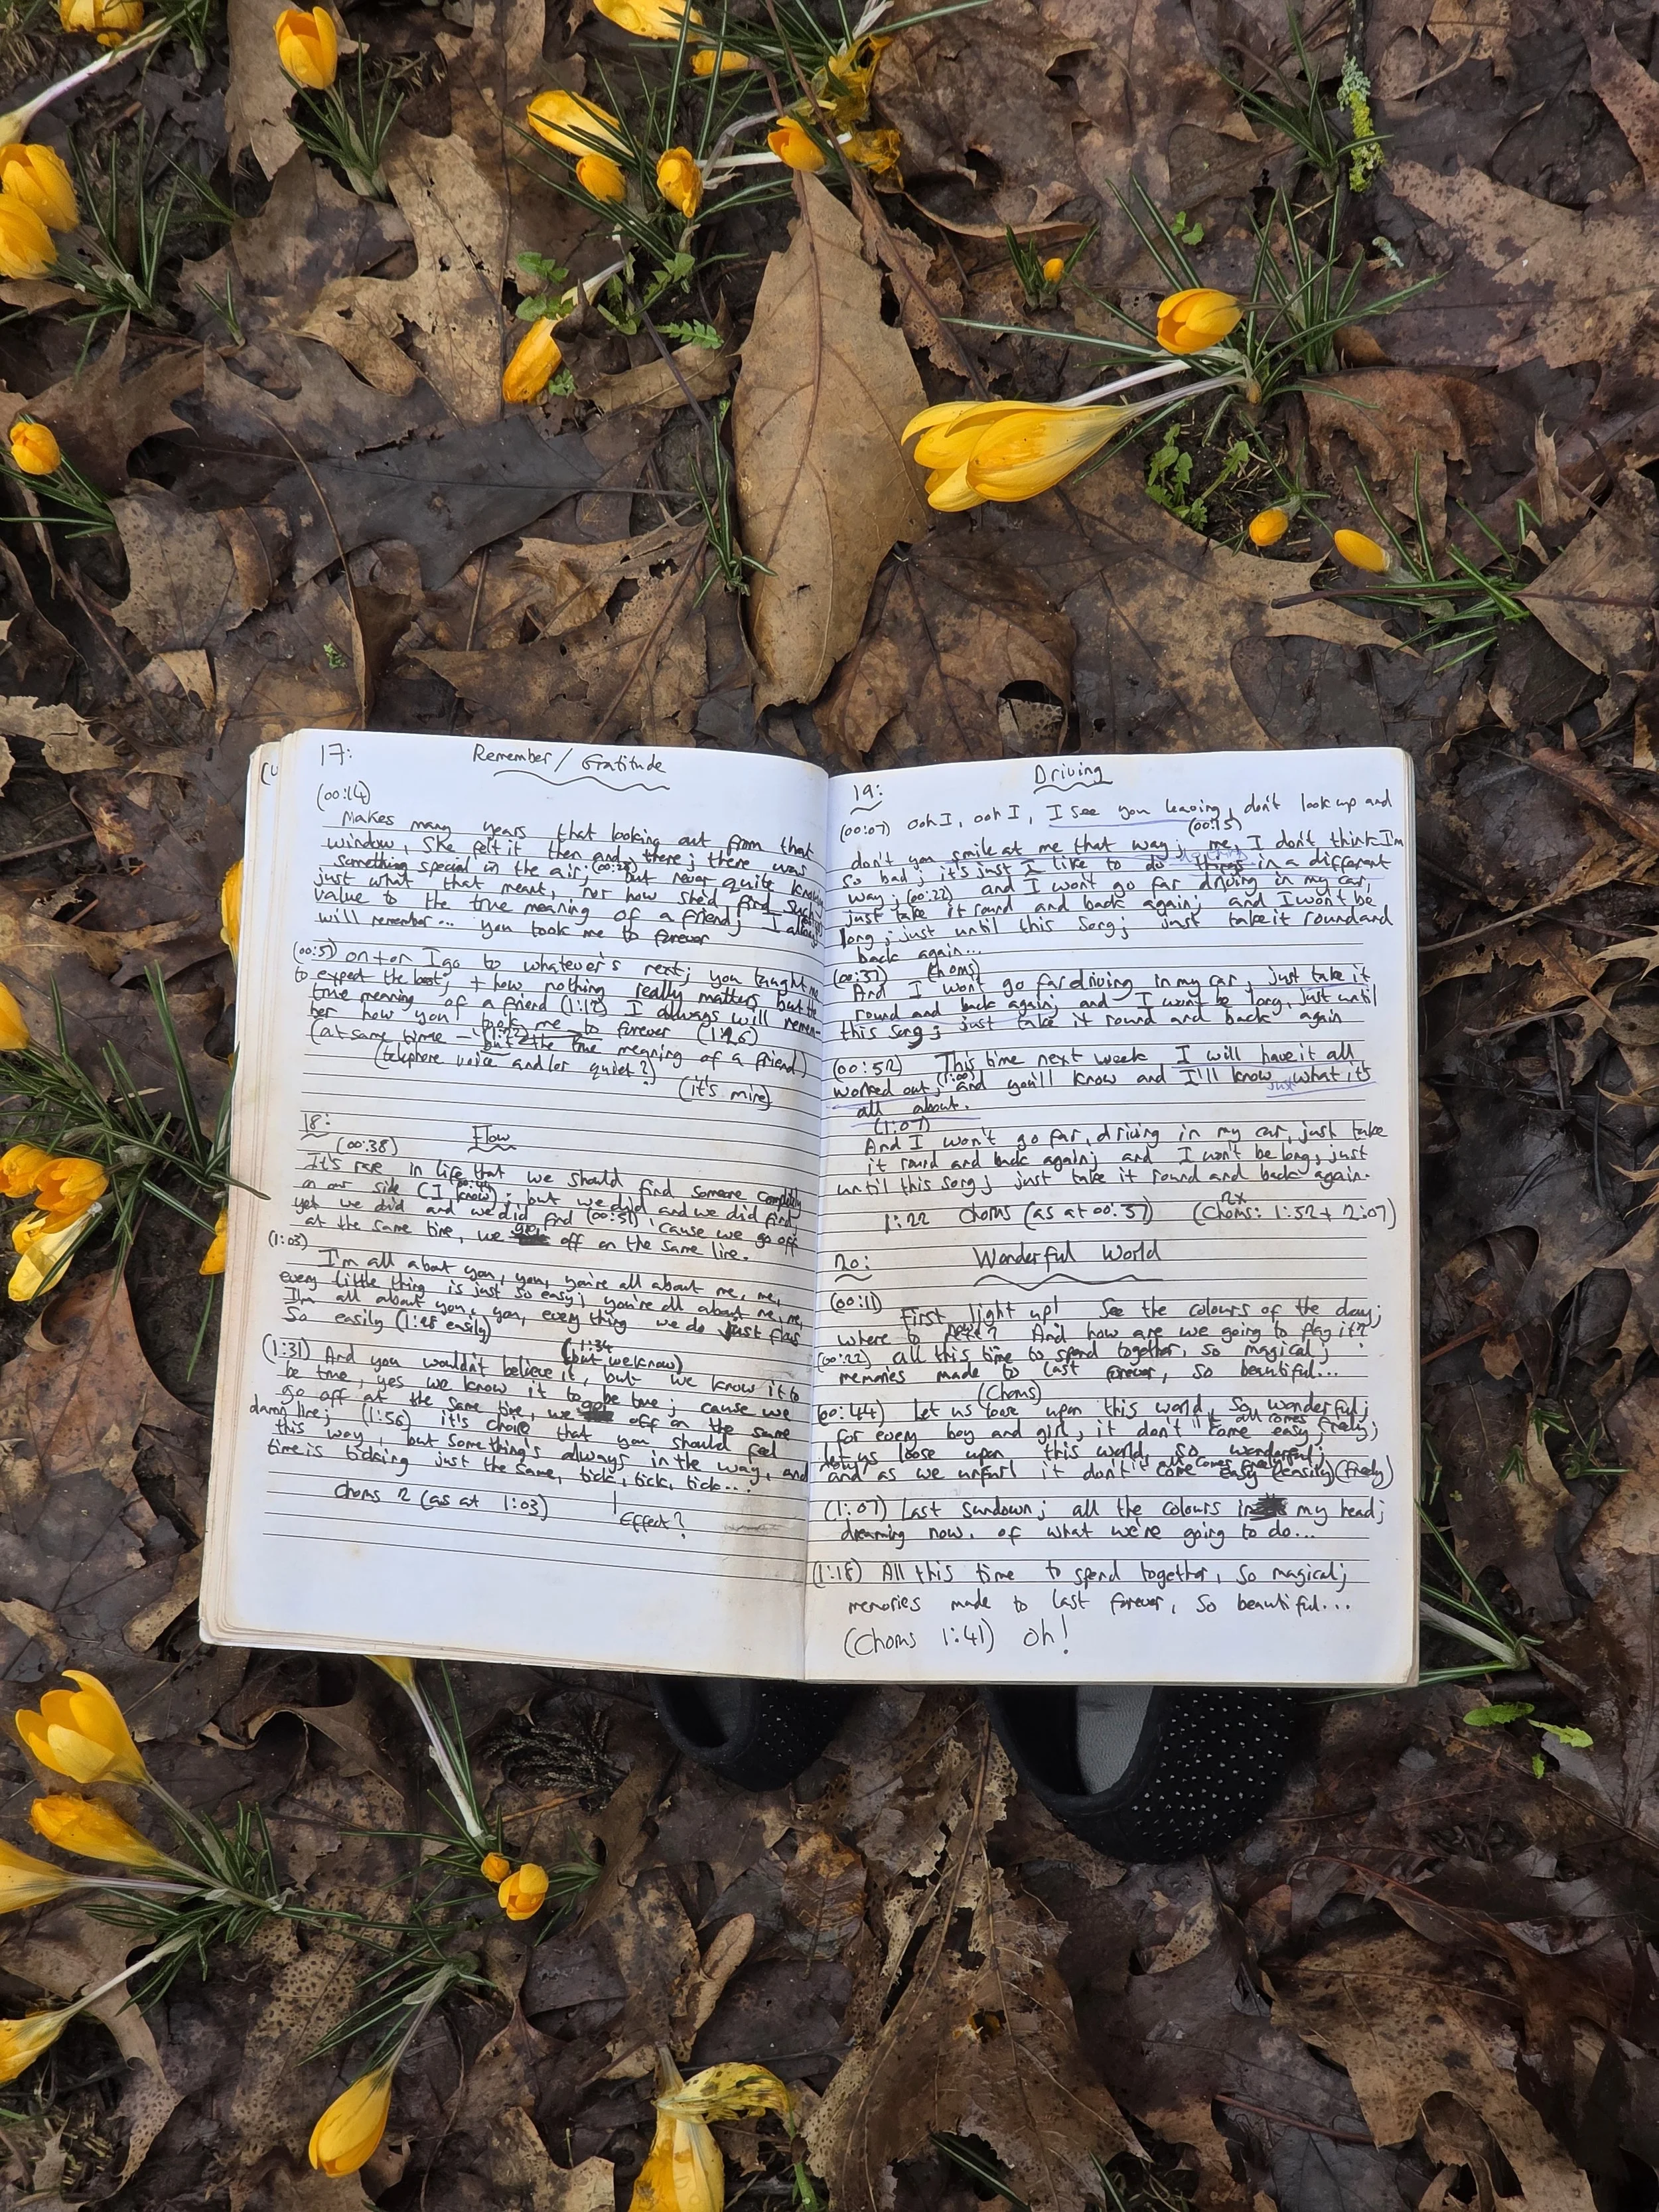 17:
Remember / Gratitude
(00:14)
Makes many years that looking out from that
window, she felt it then and there; there was
something special in the air; (00:28) but never quite knowing
just what that meant, nor how she'd find such
value to the true meaning of a friend; I always
will remember... you took me to forever
(00:51) on + on I go to whatever's next; you taught me
to expect the best; + how nothing really matters but the
true meaning of a friend (1:12) I always will remem-
ber how you took me to forever (1:26)
(at same time - (1:22) but the true meaning of a friend)
(telephone voice and/or quiet?)
(it's mine)
18:
Flow
(00:38)
It's rare in life that we should find someone completely
on our side (I know); but we did and we did find,
yet we did and we did find (00:51) 'cause we go off
at the same time, we go off on the same line.
(1:03)
I'm all about you, you, you're all about me, me,
every little thing is just so easy; you're all about me, me,
I'm all about you, you, everything we do just flows
So easily (1:28 easily)
(1:34
(but we know)
(1:31) And you wouldn't believe it, but we know it to
be true, yes we know it to be true; cause we
go off at the same time, we go off on the same
damn line; (1:56) it's choice that you should feel
this way, but something's always in the way, and
time is ticking just the same, tick, tick, tick...
Chorus 2 (as at 1:03)
Effect?
Driving
19:
(00:07) Ooh I, ooh I, I see you leaving, don't look up and
(00:15)
don't you smile at me that way; me, I don't think I'm
so bad; it's just I like to do things in a different
way; (00:22) and I won't go far driving in my car,
just take it round and back again; and I won't be
long; just until this song; just take it round and
back again...
(00:37) (Chorus)
And I won't go far driving in my car, just take it
round and back again; and I won't be long, just until
this song; just take it round and back again
(00:52) This time next week I will have it all
worked out; (1:00) and you'll know and I'll know just what it's
all about.
(1:07)
And I won't go far, driving in my car, just take
it round and back again; and I won't be long; just
until this song; just take it round and back again.
1:22 Chorus (as at 00:37) (2x Chorus: 1:52 + 2:07)
20:
Wonderful World
(00:11)
First light up! See the colours of the day;
where to now? And how are we going to play it?
(00:22) all this time to spend together, so magical;
memories made to last forever, so beautiful...
(Chorus)
(00:44) Let us loose upon this world, so wonderful;
for every boy and girl, it don't come easy it all comes freely;
let us loose upon this world, so wonderful;
and as we unfurl it don't come easy all comes (easily) (freely)
(1:07) Last sundown; all the colours in my head;
dreaming now, of what we're going to do...
(1:18) All this time to spend together, so magical;
memories made to last forever, so beautiful...
(Chorus 1:41) Oh!